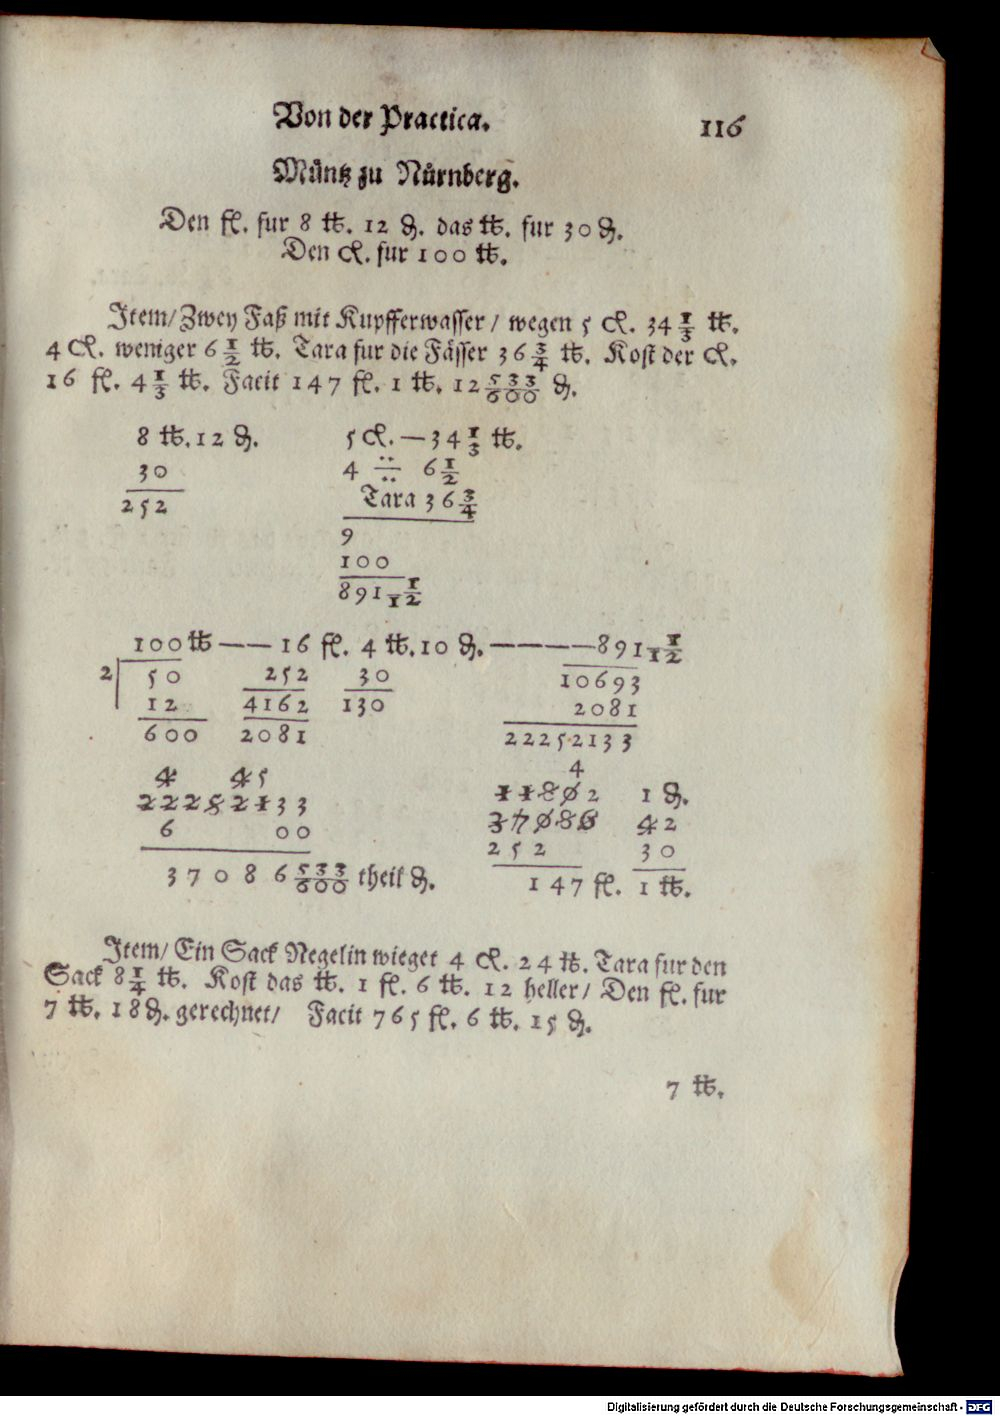 Von der Practica.
116
Müntz zu Nürnberg.
Den fl. fur 8 ℔. 12 ₰. das ℔. fur 30 ₰.
Den cl. fur 100 ℔.
Item/ Zwey Faß mit Kupfferwasser / wegen 5 cl. 34 1/3 ℔.
4 cl. weniger 6 1/2 ℔. Tara fur die Fässer 36 3/4 ℔. Kost der cl.
16 fl. 4 1/3 ℔. Facit 147 fl. 1 ℔. 12 533/600 ₰.
8 ℔. 12 ₰. 5 cl. — 34 1/3 ℔.
30 4 ÷ 6 1/2
252 Tara 36 3/4
9
100
891 1/12
100 ℔ —— 16 fl. 4 ℔. 10 ₰. ———— 891 1/12
2 50 252 30 10693
12 4162 130 2081
600 2081 22252133
4 45 4
22252133 11802 1 ₰.
6 00 37086 42
252 30
37086 533/600 theil ₰. 147 fl. 1 ℔.
Item/ Ein Sack Negelin wieget 4 cl. 24 ℔. Tara fur den
Sack 8 1/4 ℔. Kost das ℔. 1 fl. 6 ℔. 12 heller/ Den fl. fur
7 ℔. 18 ₰. gerechnet/ Facit 765 fl. 6 ℔. 15 ₰.
7 ℔.
Digitalisierung gefördert durch die Deutsche Forschungsgemeinschaft - DFG